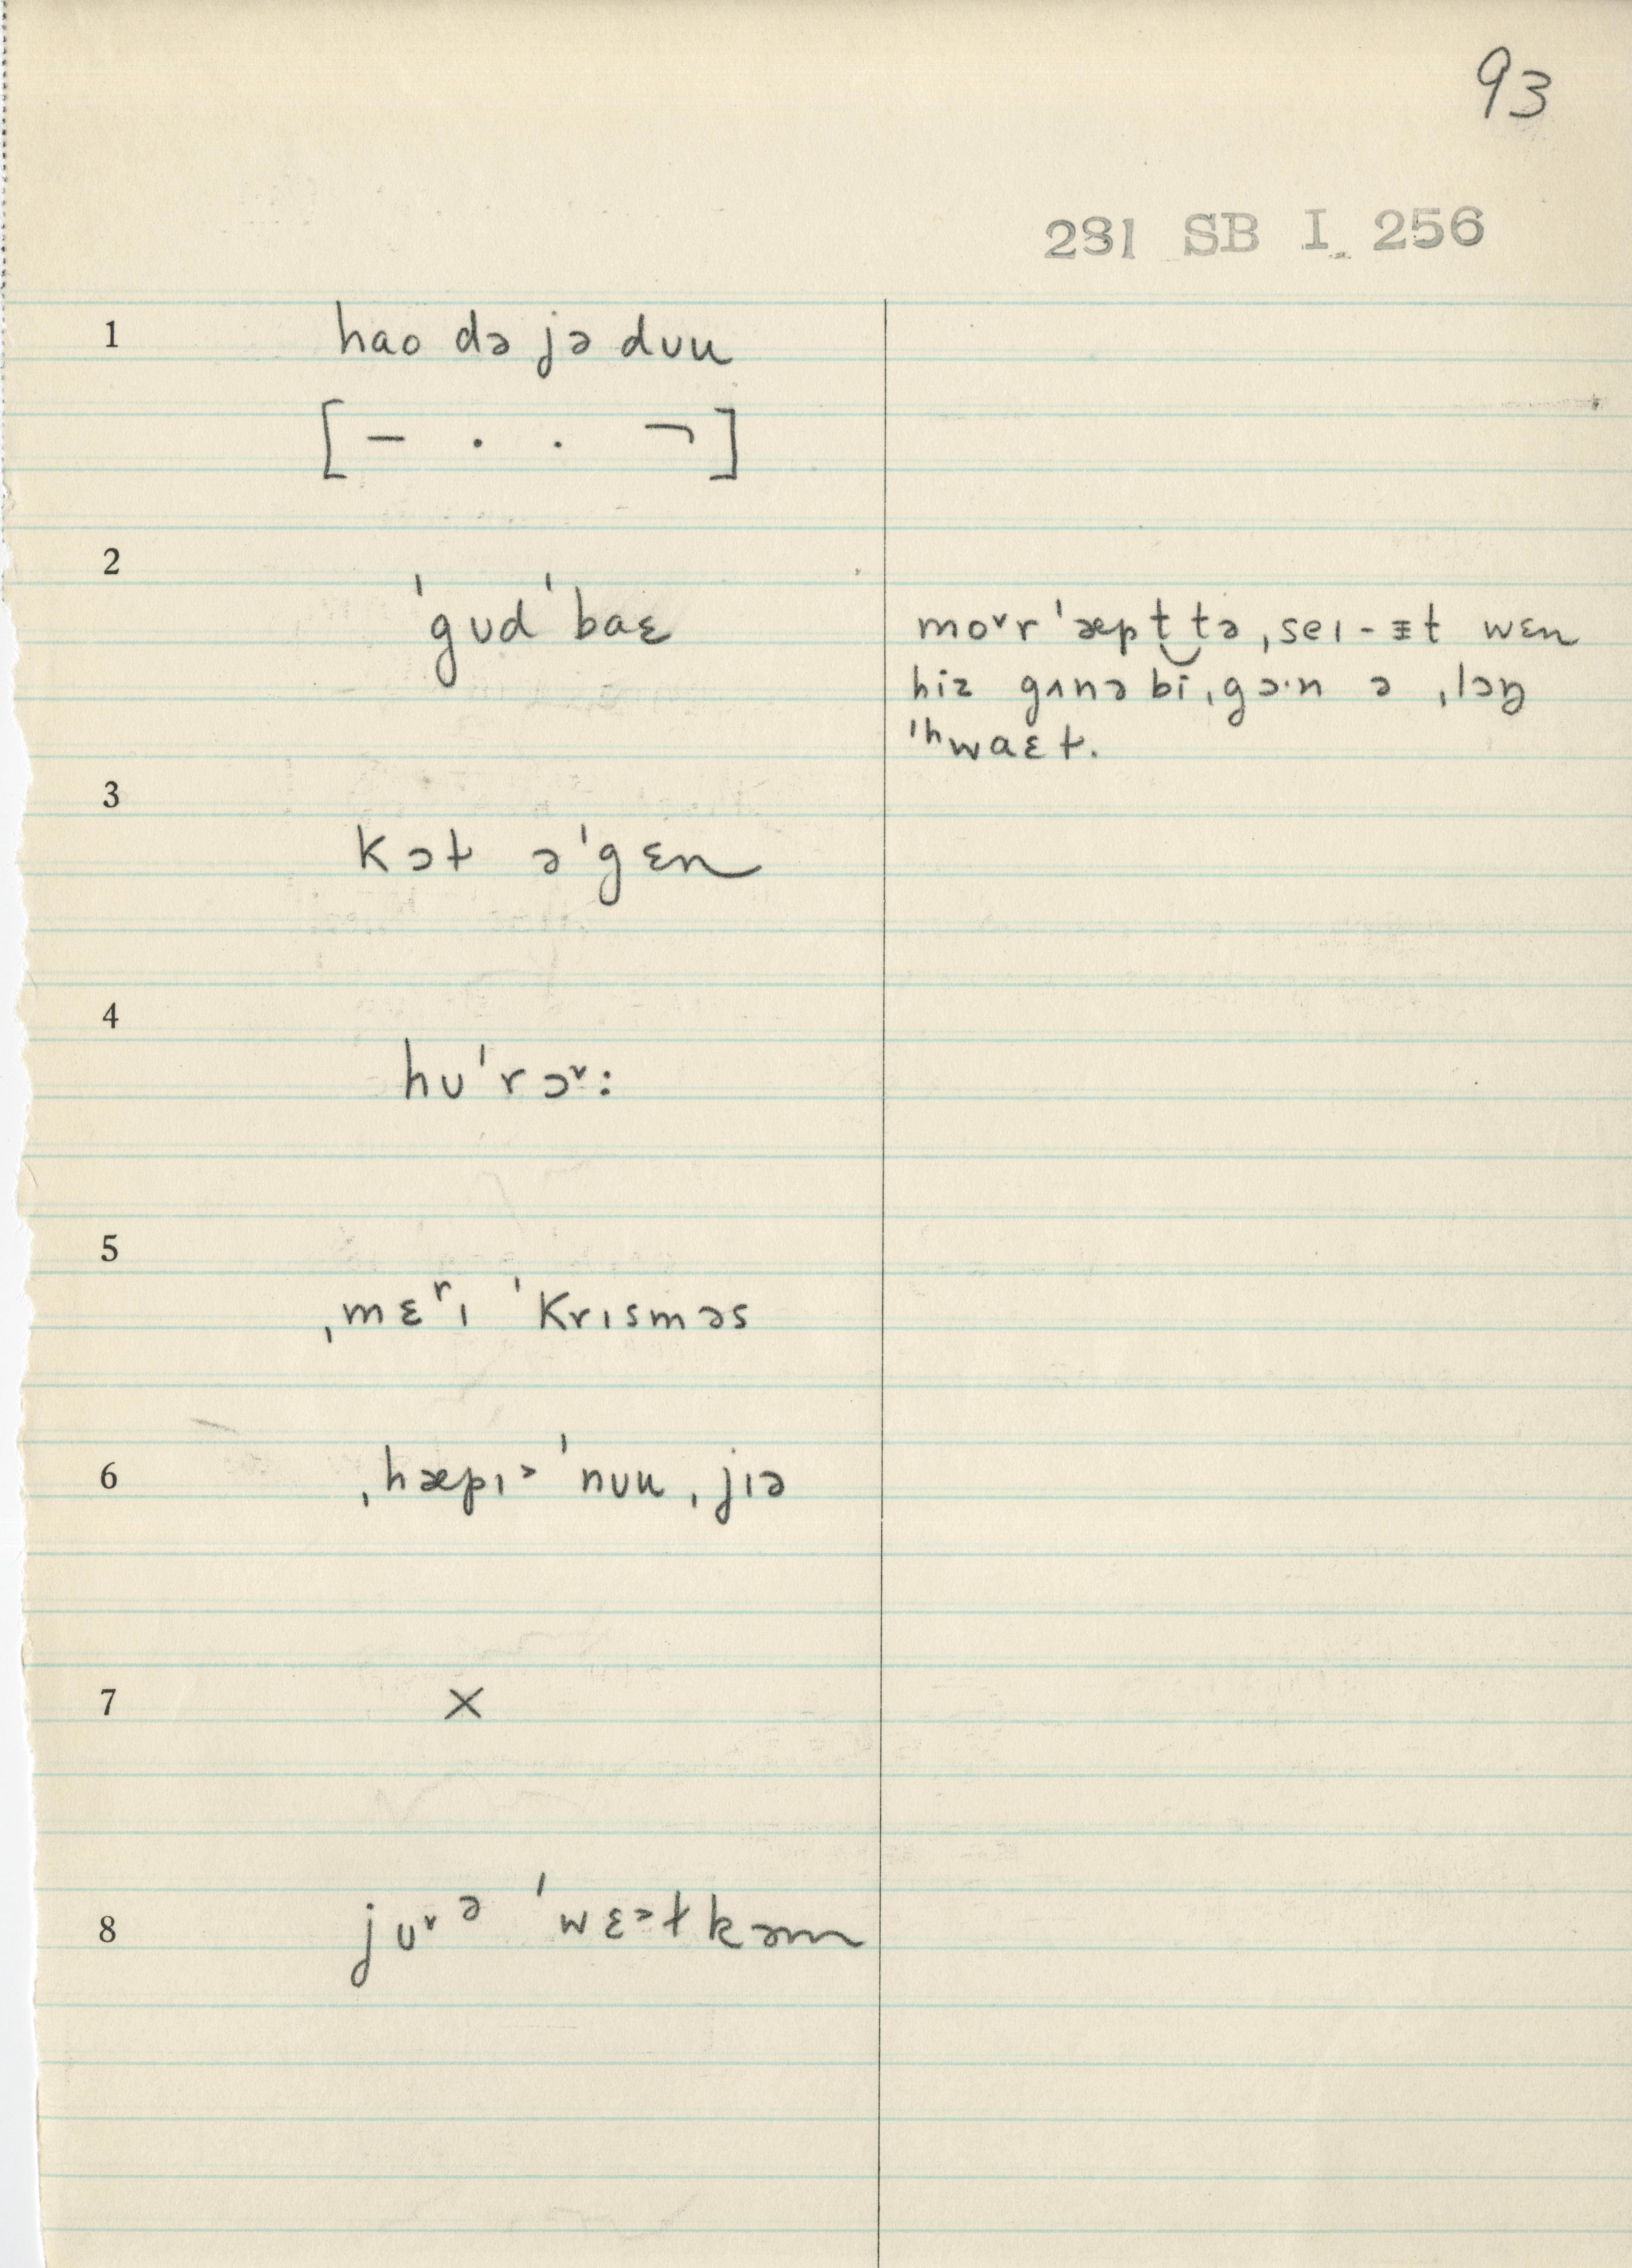 93
281 SB I 256
1 hao də jə dʊu
[ – · · ¬ ]
2
ˈgʊdˈbaɛ
moᵛrˈæpt‿tə ˌseɪ-ᵻt wɛn
hiz gʌnə bĭ ˌgɔ·n ə ˌlɔŋ
ˈʰwaɛt.
3
kɔt əˈgɛn
4
hʊˈrɔᵛ:
5
ˌmɛʳɪ ˈkrɪsməs
6 ˌhæpɪ˃ ˈnʊu ˌjɪə
7 ×
8 jʊᵛᵊ ˈwɛ˃ɫkəm